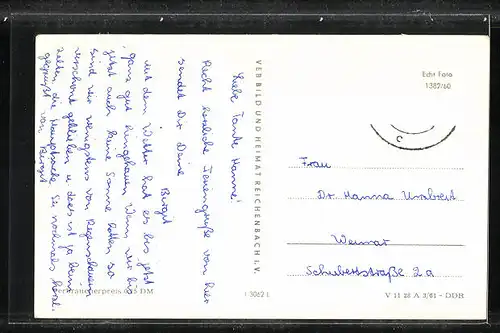 Liebe Tante Hanne!
Recht herzliche Feriengrüße von hier
sendet Dir Deine
Birgit
Mit dem Wetter hat es bis jetzt
ganz gut hingehauen. Wenn wir bis
jetzt auch keine Sonne hatten so
sind wir wenigstens von Regenschauern
verschont geblieben u. das ist ja beim
zelten die Hauptsache. Sei nochmals herzl.
gegrüßt von Birgit
Verbraucherpreis 0,15 DM
VEB BILD UND HEIMAT REICHENBACH I. V.
Echt Foto
1387/60
Frau
Dr. Hanna Urabreit
Weimar
Schubertstraße 2a
V 11 28 A 3/61 - DDR